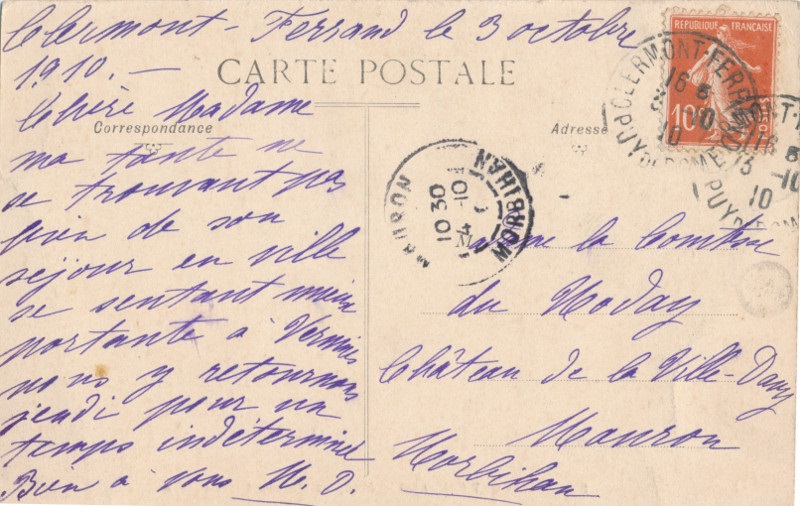 Clermont-Ferrand le 3 octobre
1910.—
CARTE POSTALE
Correspondance
Chère Madame
ma tante ne
se trouvant pas
bien de son
séjour en ville
se sentant mieux
portante à
nous y retournons
jeudi pour un
temps indéterminé
Bien à vous
Adresse
REPUBLIQUE FRANÇAISE
10
POSTES
CLERMONT-FERRAND
16 5
3 -10
10
PUY-DE-DOME
16 5
3 -10
10
PUY-DE-DOME
MAURON
MORBIHAN
10 30
4 -10
la Comtesse
du Noday
Château de la Ville-Davy
Mauron
Morbihan